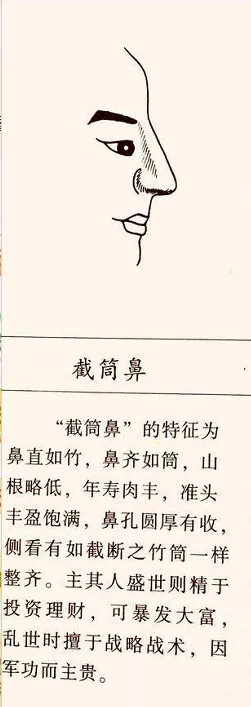 截筒鼻
“截筒鼻”的特征为
鼻直如竹，鼻齐如筒，山
根略低，年寿肉丰，准头
丰盈饱满，鼻孔圆厚有收，
侧看有如截断之竹筒一样
整齐。主其人盛世则精于
投资理财，可暴发大富，
乱世时擅于战略战术，因
军功而主贵。